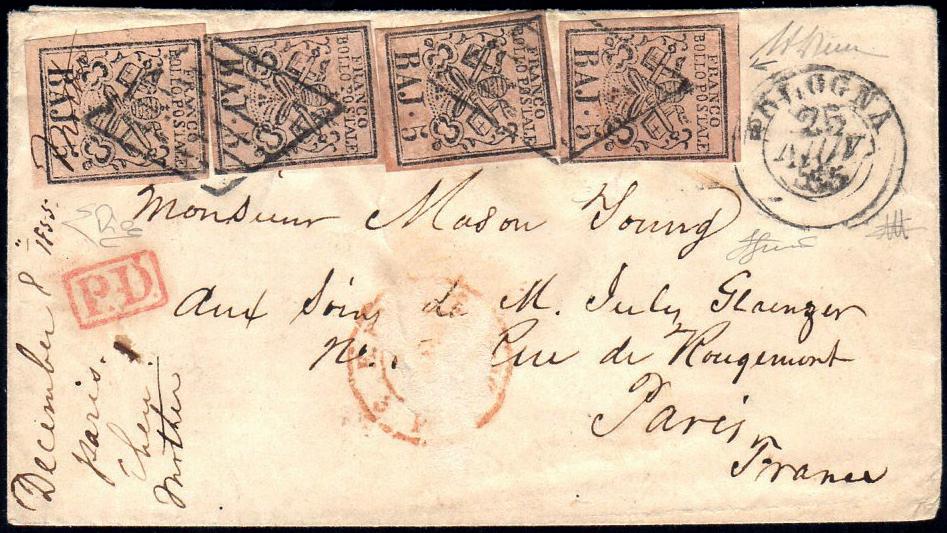 FRANCO
BOLLO POSTALE
BAJ. 5
FRANCO
BOLLO POSTALE
BAJ. 5
FRANCO
BOLLO POSTALE
BAJ. 5
FRANCO
BOLLO POSTALE
BAJ. 5
BOLOGNA
25
NOV
55
Monsieur Mason Young
Aux Soins de M. July Glaenzer
No. 1 Rue de Rougemont
Paris
France
P.D.
December 8" 1855.
paris.
Mother